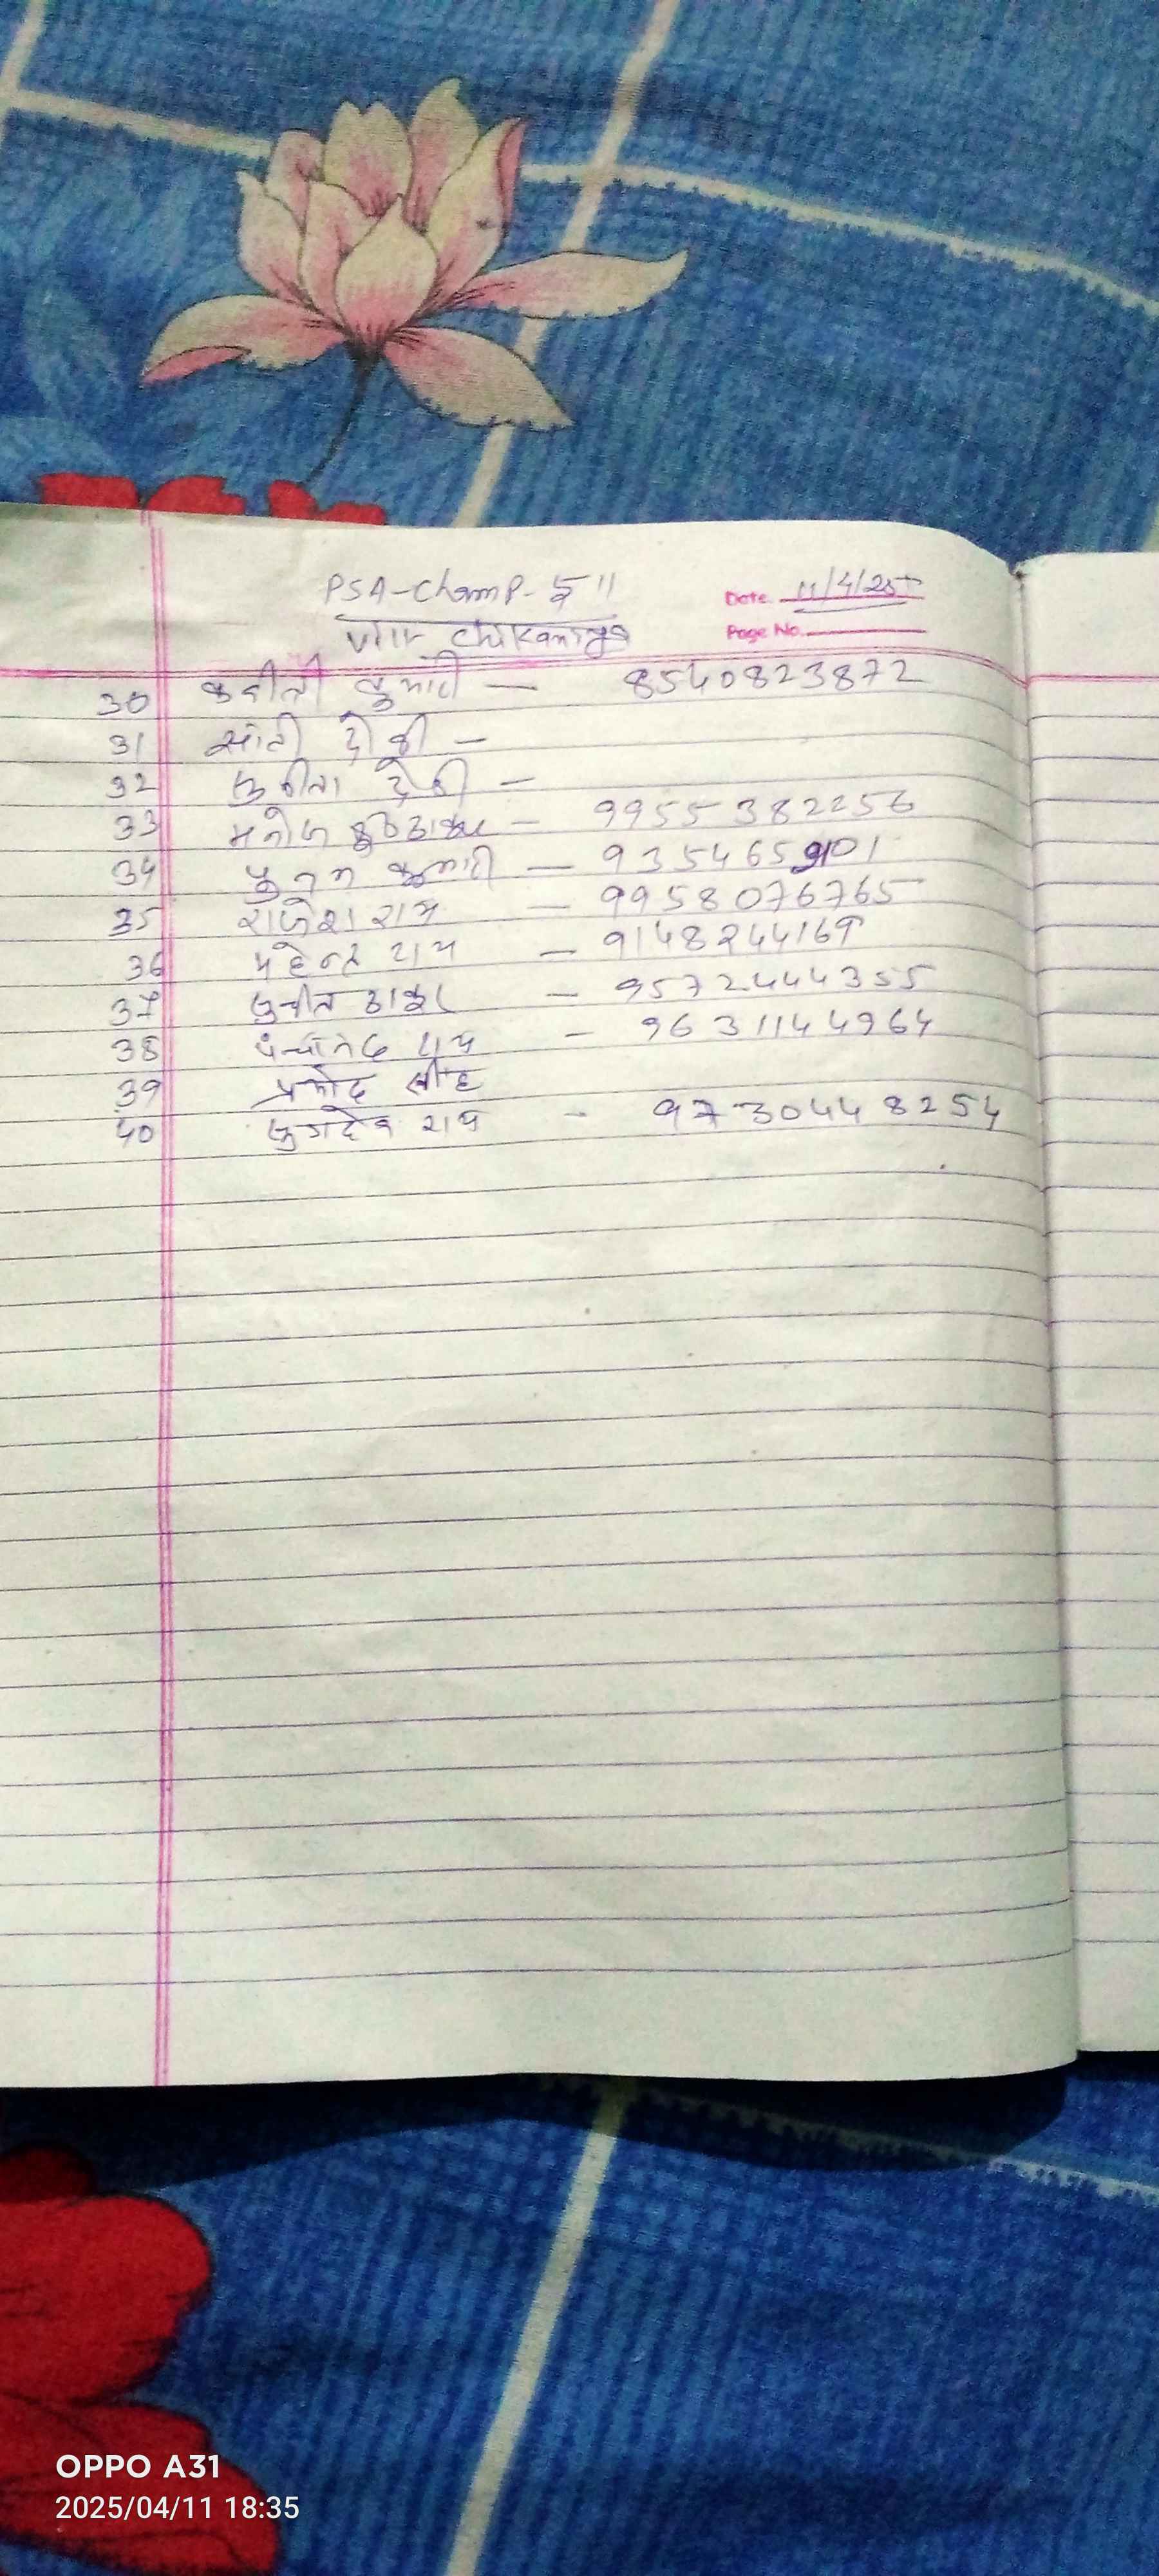 PSA-Champ-
Date 11/4/25
Vill- Chikaniya
Page No.
30 कुमारी — 8540823872
31 देवी —
32 सुनीता देवी —
33 मनोज — 9955382256
34 पुनम कुमारी — 9354659101
35 राजेश राम — 9958076765
36 महेन्द्र राम — 9148244169
37 — 9572444355
38 राम — 9631144964
39 प्रमोद सींह
40 राम - 9730448254
OPPO A31
2025/04/11 18:35